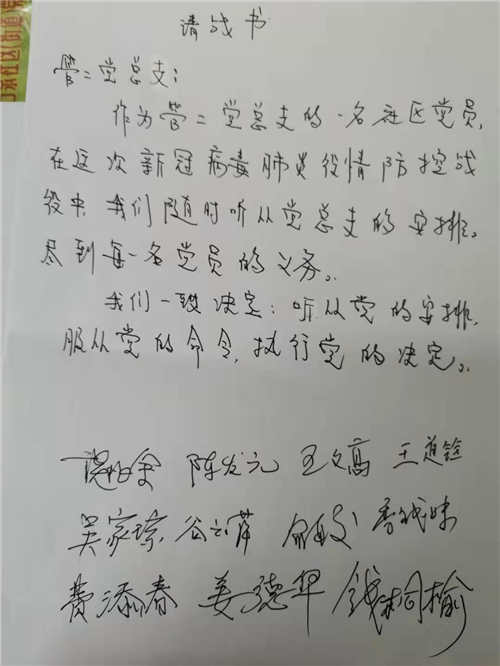 请战书
管二党总支：
作为管二党总支的一名社区党员,
在这次新冠病毒肺炎役情防控战
役中,我们随时听从党总支的安排。
尽到每一名党员的义务。
我们一致决定：听从党的安排,
服从党的命令,执行党的决定。
陈发元 王文高 王道铨
吴家琼 谷云萍
费添春 姜德华 钱桐榆